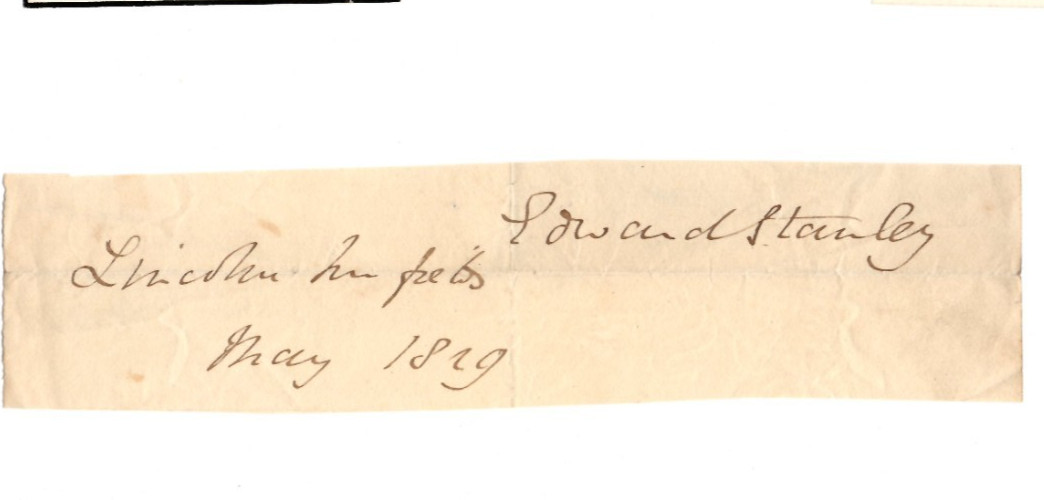 Edward Stanley
Lincoln Inn fields
May 1829